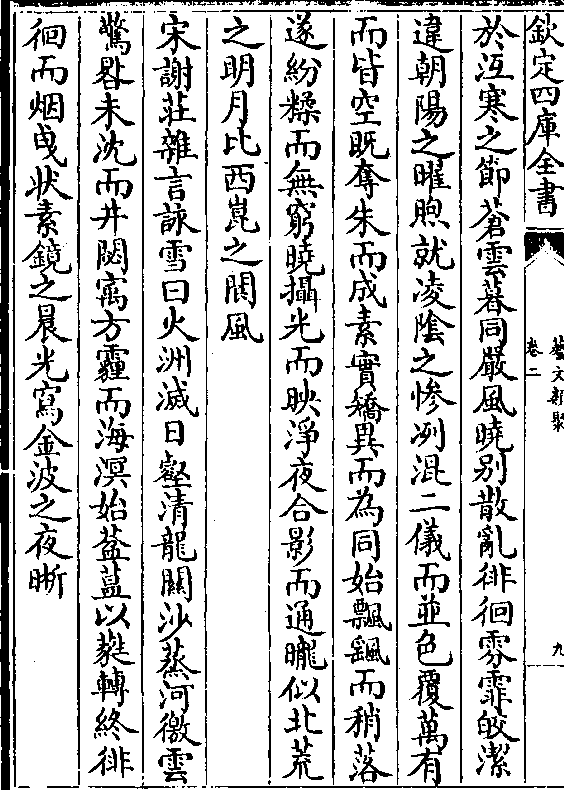 欽定四庫全書
藝文類聚
卷二
九
於沍寒之節蒼雲暮同嚴風曉别散亂徘徊雰霏皎潔
違朝陽之曜煦就凌陰之慘冽混二儀而並色覆萬有
而皆空既奪朱而成素實矯異而為同始飄颻而稍落
遂紛糅而無窮曉攝光而映淨夜合影而通朧似北荒
之明月比西崑之閬風
宋謝莊雜言詠雪曰火洲滅日壑清龍關沙蒸河徼雲
驚晷未沈而井閟寓方霾而海溟始葐蒀以蕤轉終徘
徊而烟曳狀素鏡之晨光寫金波之夜晰